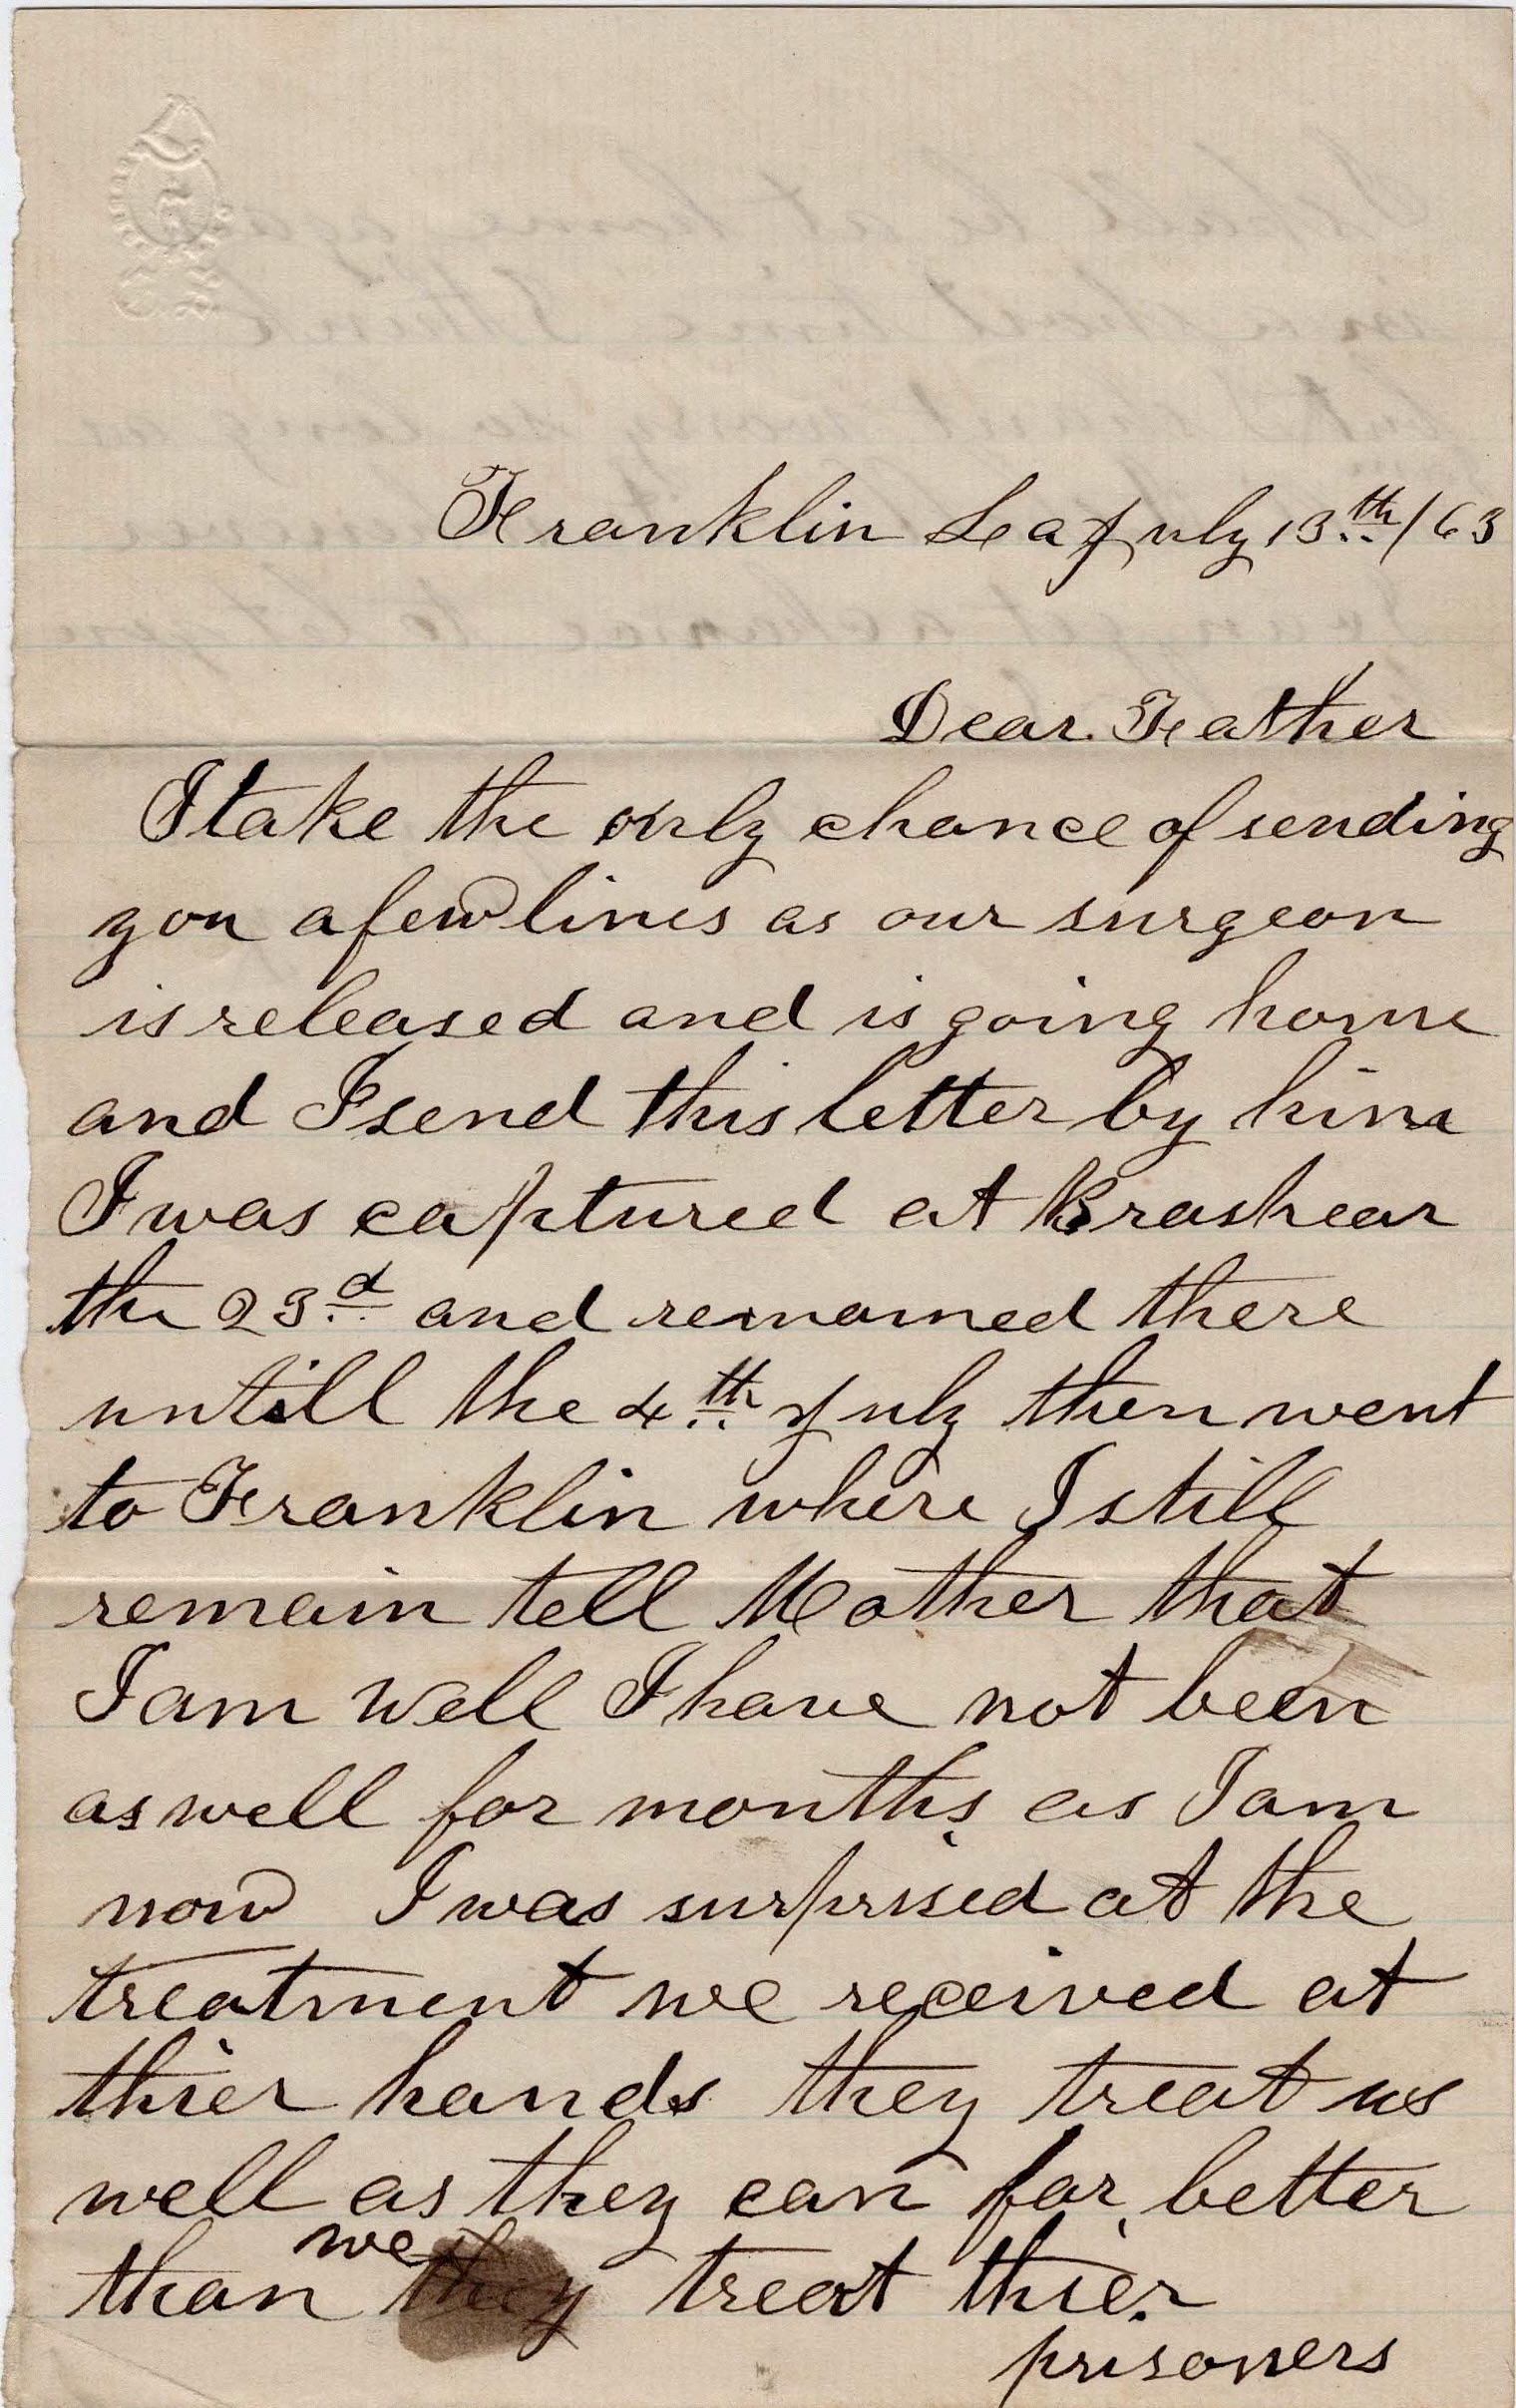 Franklin La July 13th/63
Dear Father
I take the only chance of sending
you a few lines as our surgeon
is released and is going home
and I send this letter by him
I was captured at Brashear
the 23d and remained there
untill the 4th July then went
to Franklin where I still
remain tell Mother that
I am well I have not been
as well for months as I am
now I was surprised at the
treatment we received at
thier hands they treat us
well as they can far better
we
than they treat thier
prisoners